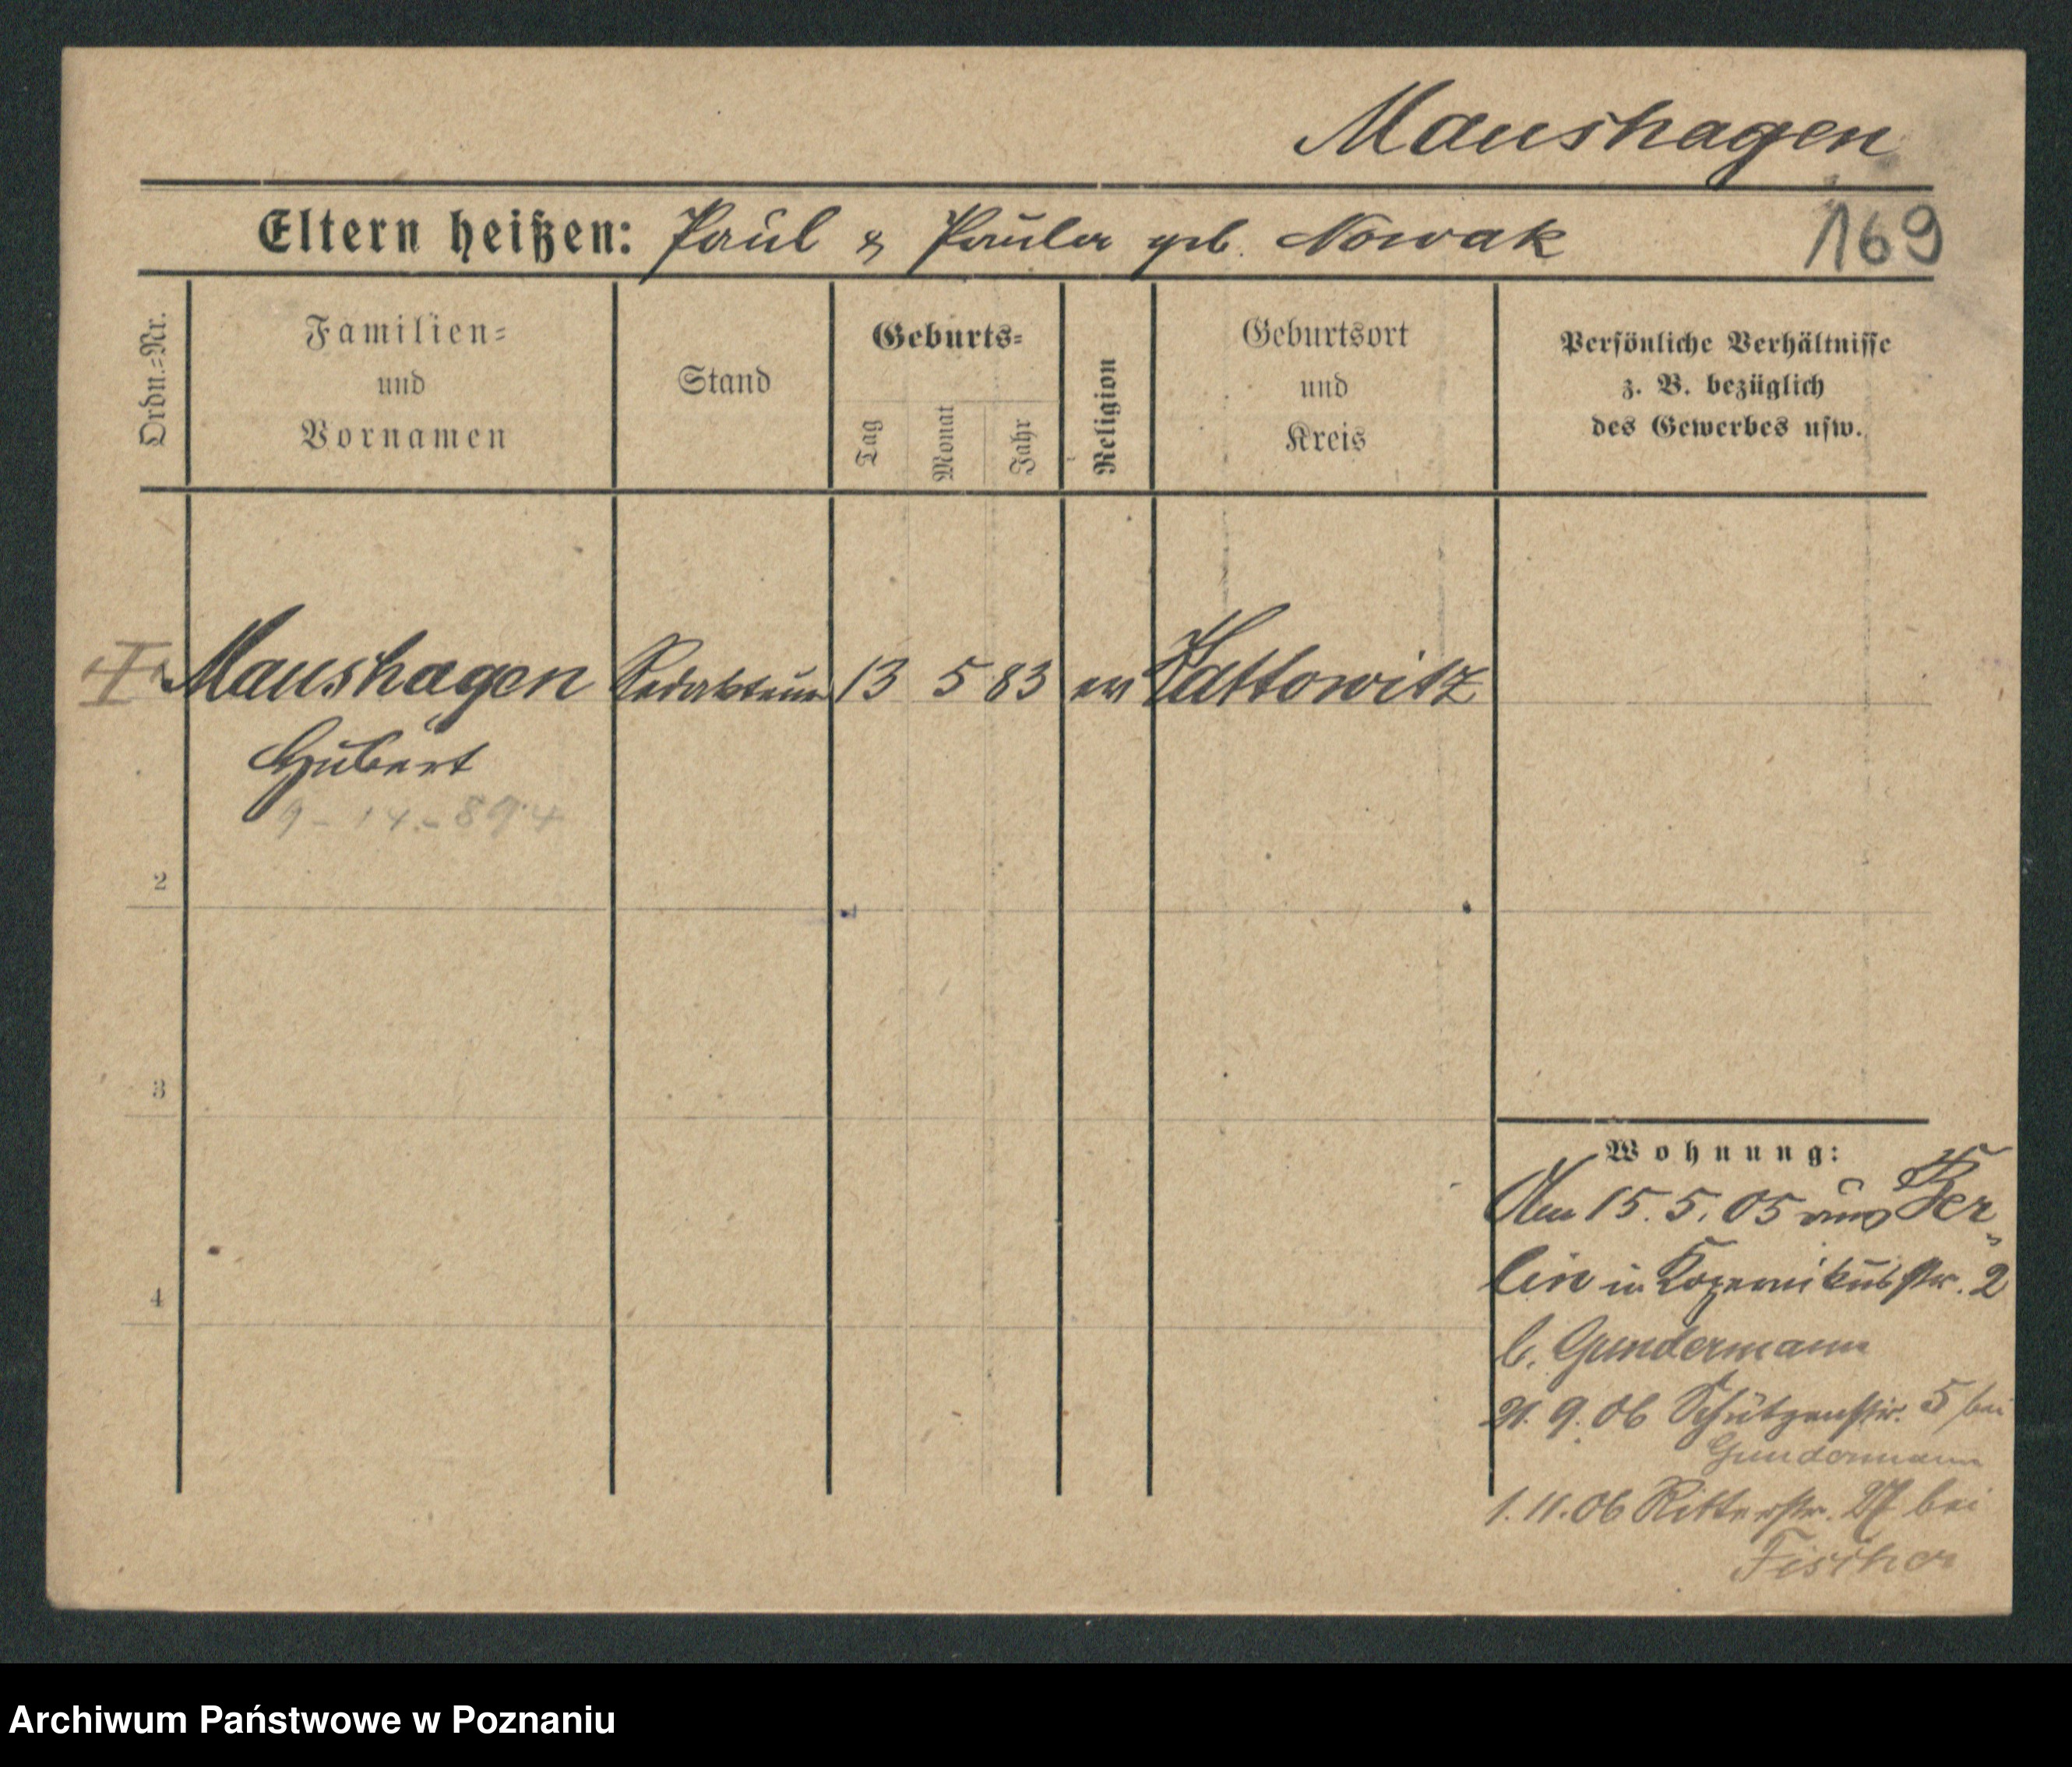 Maushagen
Eltern heißen: Paul & Paula geb. Nowak
169
Ordn.=Nr.
Familien=
und
Vornamen
Stand
Geburts=
Tag
Monat
Jahr
Religion
Geburtsort
und
Kreis
Persönliche Verhältnisse
z. B. bezüglich
des Gewerbes usw.
Maushagen Redakteur 13 5 83 ev Kattowitz
Hubert
9-14.-894
2
3
4
Wohnung:
Am 15. 5. 05 aus Ber=
lin in Kopernikusstr. 2
b. Gundermann
21. 9. 06 Schützenstr. 5 bei
Gundermann
1. 11. 06 Ritterstr. 27 bei
Fischer
Archiwum Państwowe w Poznaniu